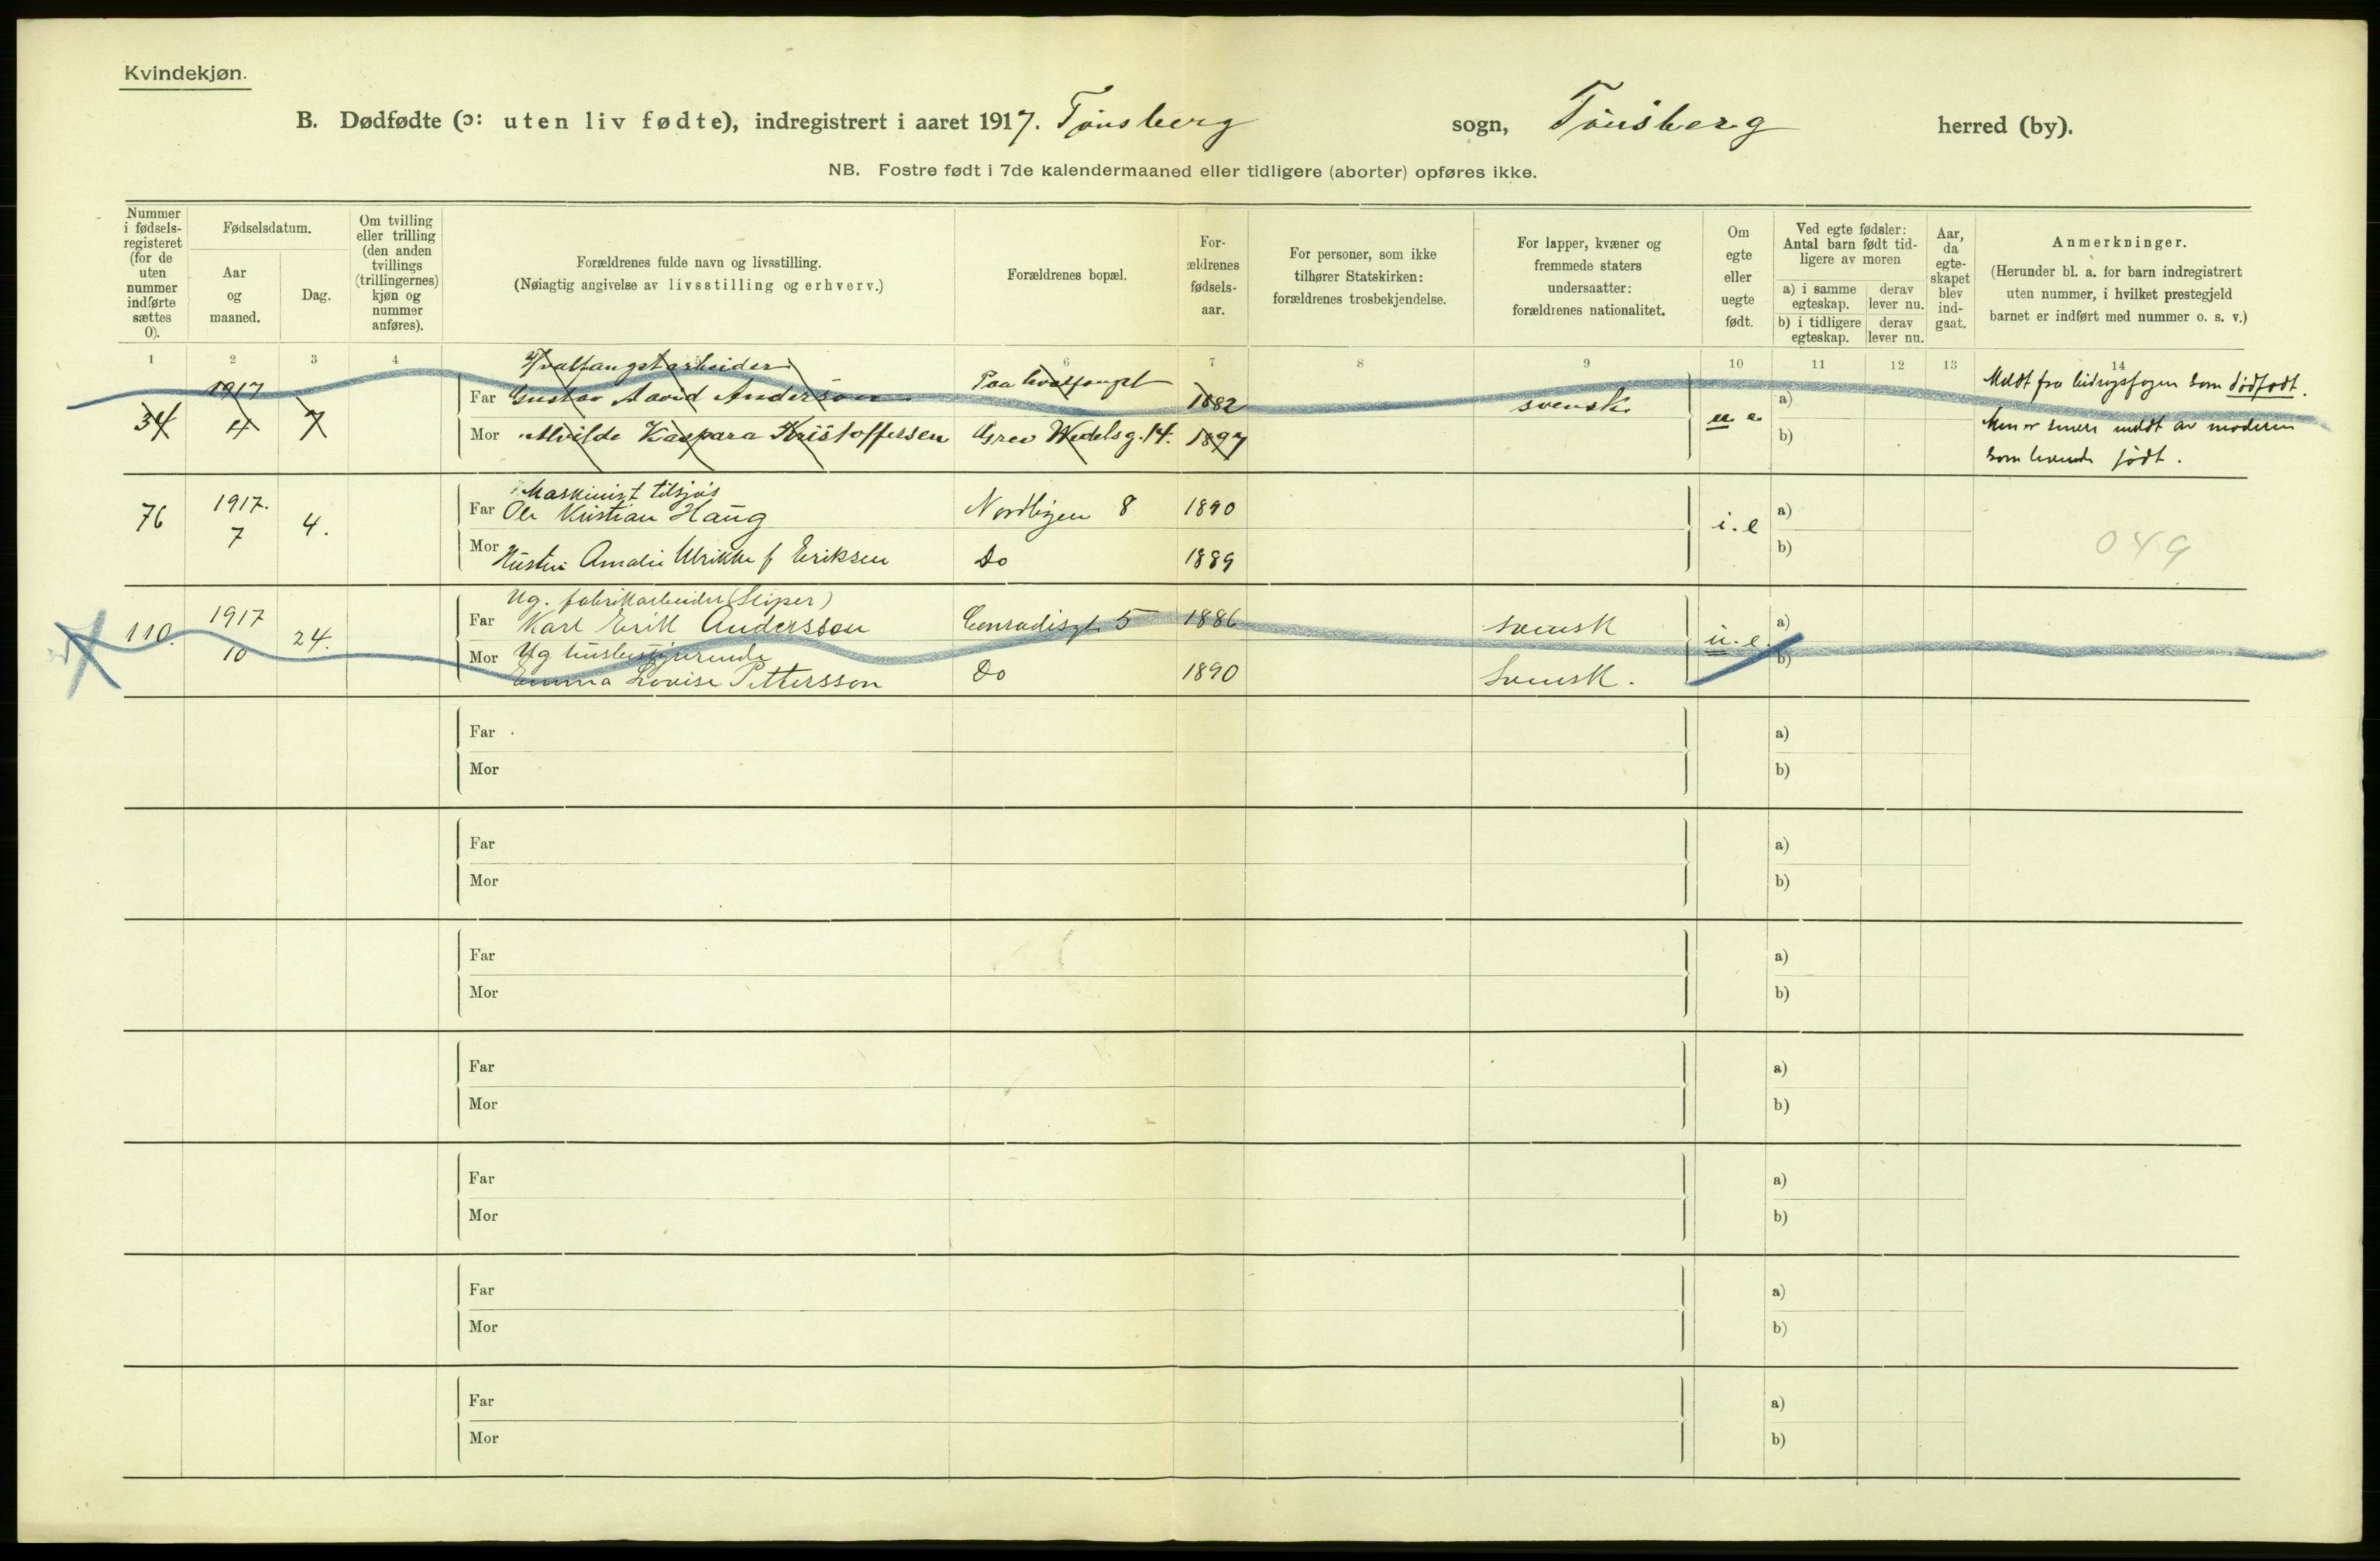 Kvindekjøn.
B. Dødfødte (ɔ: uten liv fødte), indregistrert i aaret 1917. Tønsberg sogn, Tønsberg herred (by).
NB. Fostre født i 7de kalendermaaned eller tidligere (aborter) opføres ikke.
Nummer
i fødsels-
registeret
(for de
uten
nummer
indførte
sættes
0).
Fødselsdatum.
Aar
og
maaned.
Dag.
Om tvilling
eller trilling
(den anden
tvillings
(trillingernes)
kjøn og
nummer
anføres).
Forældrenes fulde navn og livsstilling.
(Nøiagtig angivelse av livsstilling og erhverv.)
Forældrenes bopæl.
For-
ældrenes
fødsels-
aar.
For personer, som ikke
tilhører Statskirken:
forældrenes trosbekjendelse.
For lapper, kvæner og
fremmede staters
undersaatter:
forældrenes nationalitet.
Om
egte
eller
uegte
født.
Ved egte fødsler:
Antal barn født tid-
ligere av moren
a) i samme
egteskap.
derav
lever nu.
b) i tidligere
egteskap.
derav
lever nu.
Aar,
da
egte-
skapet
blev
ind-
gaat.
Anmerkninger.
(Herunder bl. a. for barn indregistrert
uten nummer, i hvilket prestegjeld
barnet er indført med nummer o. s. v.)
1 2 3 4 6 7 8 9 10 11 12 13 14
34 1917 4 7
Hvalfangstarbeider
Far Gustav Aavid Anderson Paa hvalfangst 1882 svensk
Mor Alvilde Kaspara Kristoffersen Grev Wedelsg. 14. 1897
u e
a)
b)
Meldt fra bidragsfogen som dødfødt.
Men er senere meldt av moderen
som levende født.
76 1917. 7 4.
Maskinist tilsjøs
Far Ole Kristian Haug Nordbyen 8 1890
Mor Hustru Amalie Ulrikke f Eriksen Do 1889
i. e
a)
b)
049
110. 1917 10 24.
Ug. fabrikarbeider (Sliper)
Far Karl Erik Andersson Conradisgt. 5 1886 svensk
Mor Ug husbestyrerinde
Emma Lovise Pettersson Do 1890 Svensk.
u. e.
a)
b)
Far a)
Mor b)
Far a)
Mor b)
Far a)
Mor b)
Far a)
Mor b)
Far a)
Mor b)
Far a)
Mor b)
Far a)
Mor b)